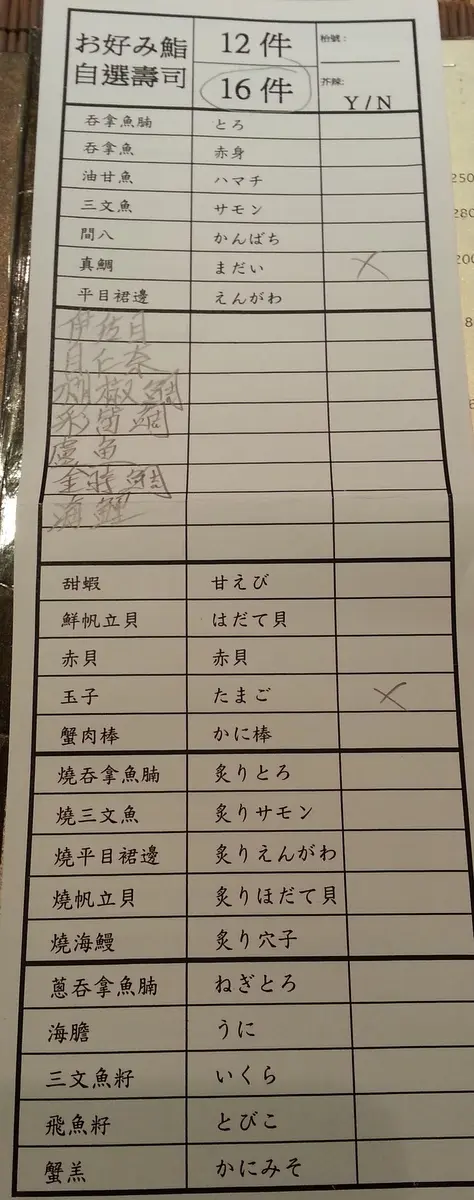 お好み鮨 12件 枱號:
自選壽司 16件 芥辣: Y/N
吞拿魚腩 とろ
吞拿魚 赤身
油甘魚 ハマチ
三文魚 サモン
間八 かんぱち
真鯛 まだい X
平目裙邊 えんがわ
伊佐目
目仁奈
胡椒鯛
彩笛鯛
盧魚
金時鯛
海鯉
甜蝦 甘えび
鮮帆立貝 はだて貝
赤貝 赤貝
玉子 たまご X
蟹肉棒 かに棒
燒吞拿魚腩 炙りとろ
燒三文魚 炙りサモン
燒平目裙邊 炙りえんがわ
燒帆立貝 炙りほだて貝
燒海鰻 炙り穴子
蔥吞拿魚腩 ねぎとろ
海膽 うに
三文魚籽 いくら
飛魚籽 とびこ
蟹羔 かにみそ
250
280
200
8